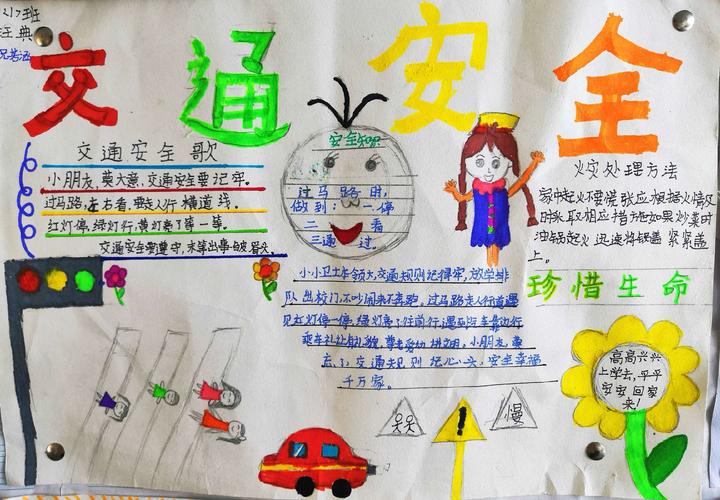 217班
交通安全
交通安全歌
小朋友,莫大意,交通安全要记牢.
过马路,左右看,要走人行横道线.
红灯停,绿灯行,黄灯亮了等一等.
交通安全要遵守,
安全知识
过马路时,
做到:一停
二看
三通过.
火灾处理方法
家中起火不要慌张应根据火情及
时采取相应措施如果炒菜时
油锅起火迅速将锅盖紧紧盖
上.
小小卫士本领大,交通规则记得牢,放学排
队出校门,不吵闹来不奔跑。过马路走人行道遇
见红灯停一停,绿灯亮了往前行遇到汽车靠边行
乘车礼让
小朋友,莫
忘了,交通规则记心头,安全幸福
千万家。
珍惜生命
高高兴兴
上学去,平平
安安回家
来!
慢